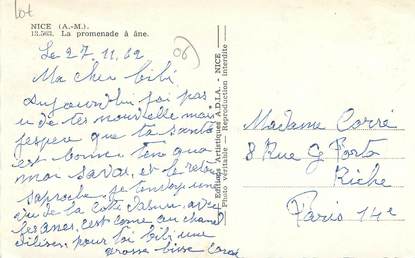 lot
NICE (A.-M.).
13.563. La promenade à âne.
06
Le 27.11.62
Ma cher bibi
Aujourdhui jai pas
u de tes nouvelle mais
jespere que ta santé
est bonne
moi sava, et le retour
saproche je tenvoy une
vu de la Cote dasur, avec
les anes, est come au chanel
pour toi bibi une
grosse bise
Editions Artistiques A.D.I.A. - NICE
Photo véritable - Reproduction interdite
Madame Carré
8 Rue G Porto
Riche
Paris 14e